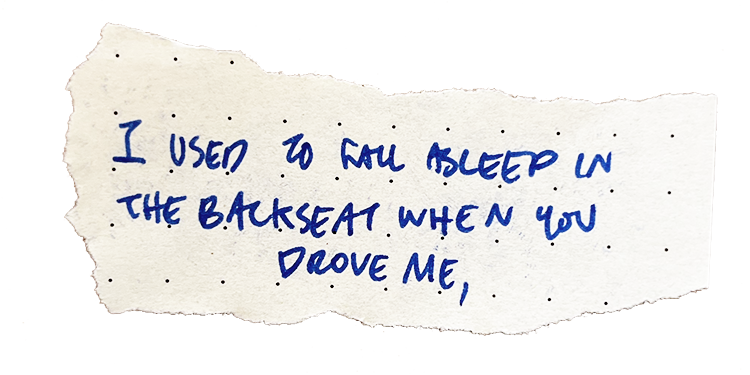 I USED TO FALL ASLEEP IN
THE BACKSEAT WHEN YOU
DROVE ME,